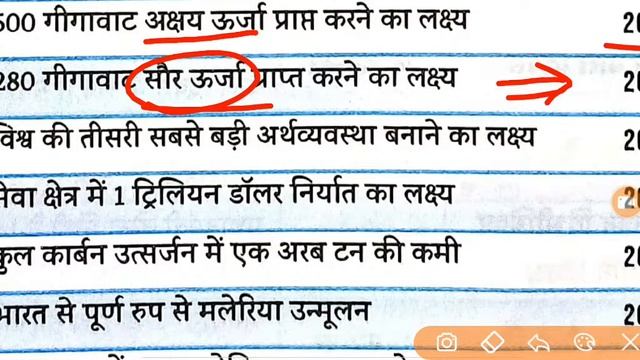 500 गीगावाट अक्षय ऊर्जा प्राप्त करने का लक्ष्य
280 गीगावाट सौर ऊर्जा प्राप्त करने का लक्ष्य
विश्व की तीसरी सबसे बड़ी अर्थव्यवस्था बनाने का लक्ष्य
सेवा क्षेत्र में 1 ट्रिलियन डॉलर निर्यात का लक्ष्य
कुल कार्बन उत्सर्जन में एक अरब टन की कमी
भारत से पूर्ण रुप से मलेरिया उन्मूलन